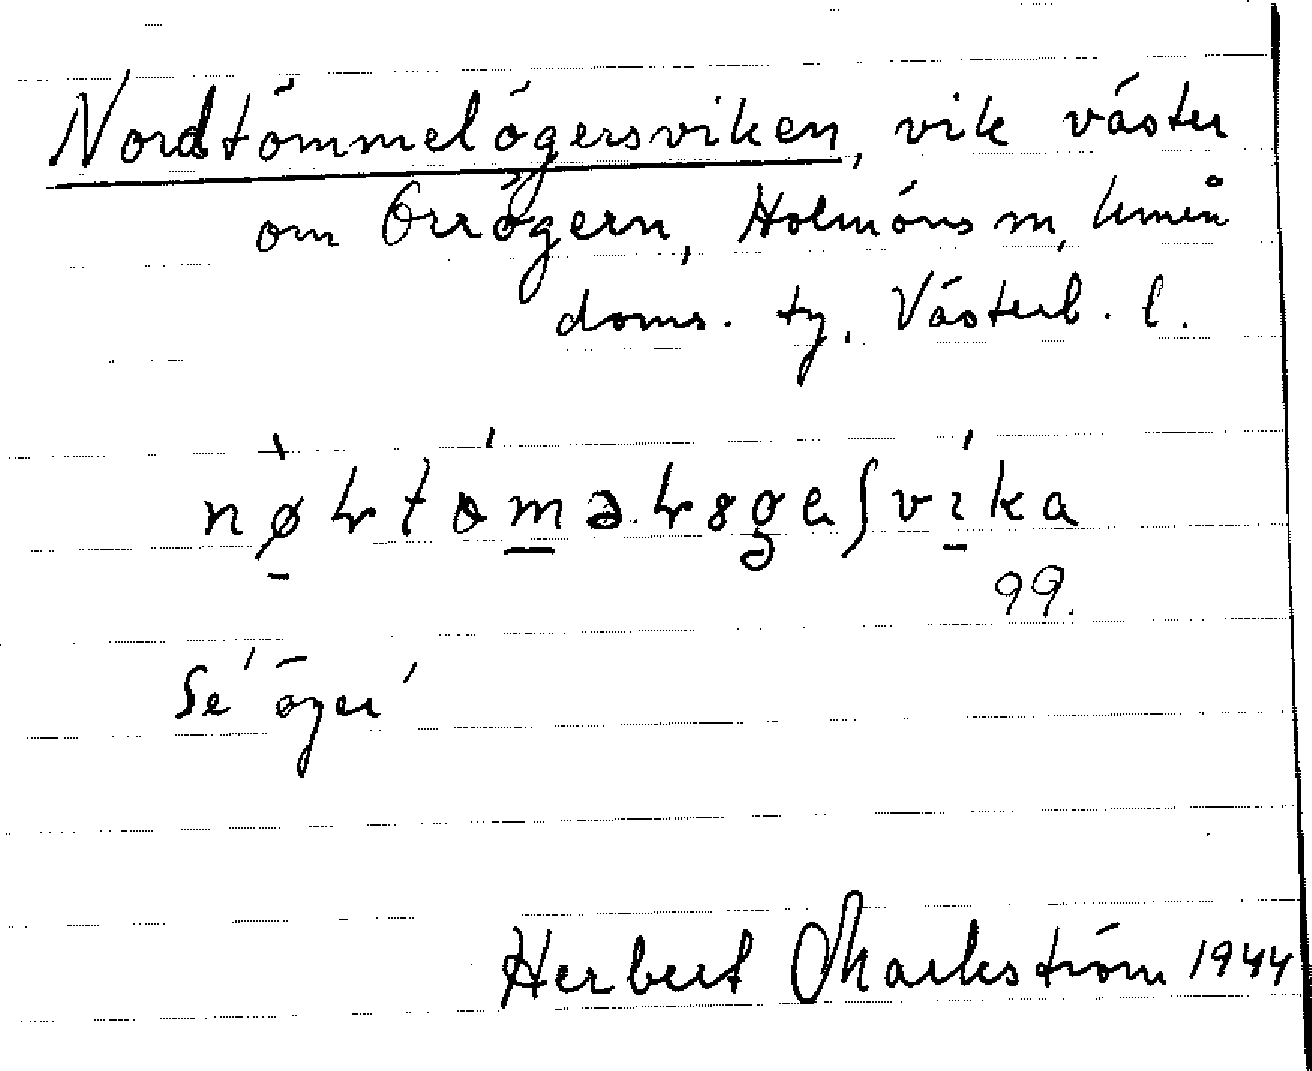 Nordtömmelögersviken, vik väster
om Örrögern, Holmöns sn, Umeå
doms. tg. Västerb. l.
99.
Se 'öger'
Herbert Markström 1944